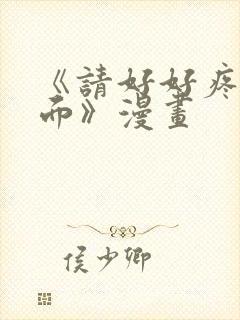 《請好好疼
而》漫畫
侯少卿